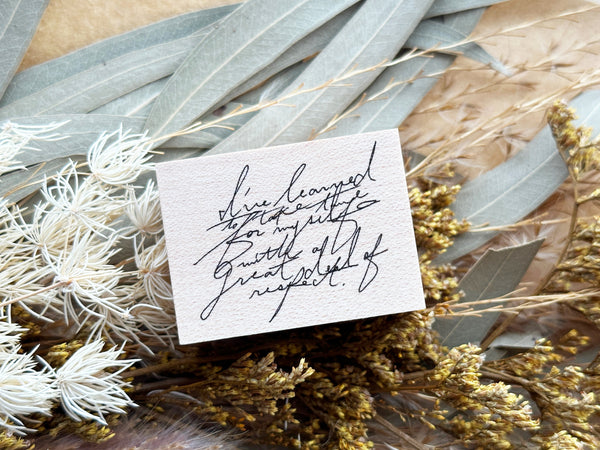 I've learned
to take time
for myself
with a
great deal of
respect.